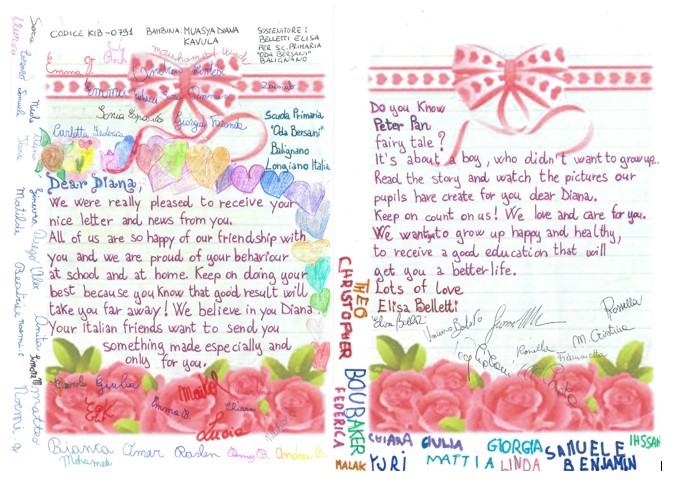 CODICE KIB-0791
BAMBINA: MUASYA DIANA
KAVULA
SOSTENITORE:
BELLETTI ELISA
PER SC. PRIMARIA
"ODA BERSANI"
BALIGNANO
Emma G.
Sonia Esposito
Giorgia
Carlotta Federica
Scuola Primaria
"Oda Bersani"
Balignano
Longiano Italia
Dear Diana,
We were really pleased to receive your
nice letter and news from you.
All of us are so happy of our friendship with
you and we are proud of your behaviour
at school and at home. Keep on doing your
best because you know that good result will
take you far away! We believe in you Diana!
Your italian friends want to send you
something made especially and
only for you.
Lorenzo
Samuele
Nicolò
Matilde
Diego
Alex
Beatrice
Anita
Matteo
Noemi
Giulia
Maikol
Emma B.
Chiara
Lucia
Bianca
Omar
Mohamed
Andrea B.
Do you Know
Peter Pan
fairy tale?
It's about a boy, who didn't want to grow up..
Read the story and watch the pictures our
pupils have create for you dear Diana.
Keep on count on us! We love and care for you.
We want you to grow up happy and healthy,
to receive a good education that will
get you a better life.
Lots of love
Elisa Belletti
Elisa Belletti
Rossella
M. Cristina
Fiammetta
THEO
CHRISTOPHER
BOUBAKER
FEDERICA
MALAK
CHIARA
GIULIA
GIORGIA
SAMUELE
IHSSAN
YURI
MATTIA
LINDA
BENJAMIN